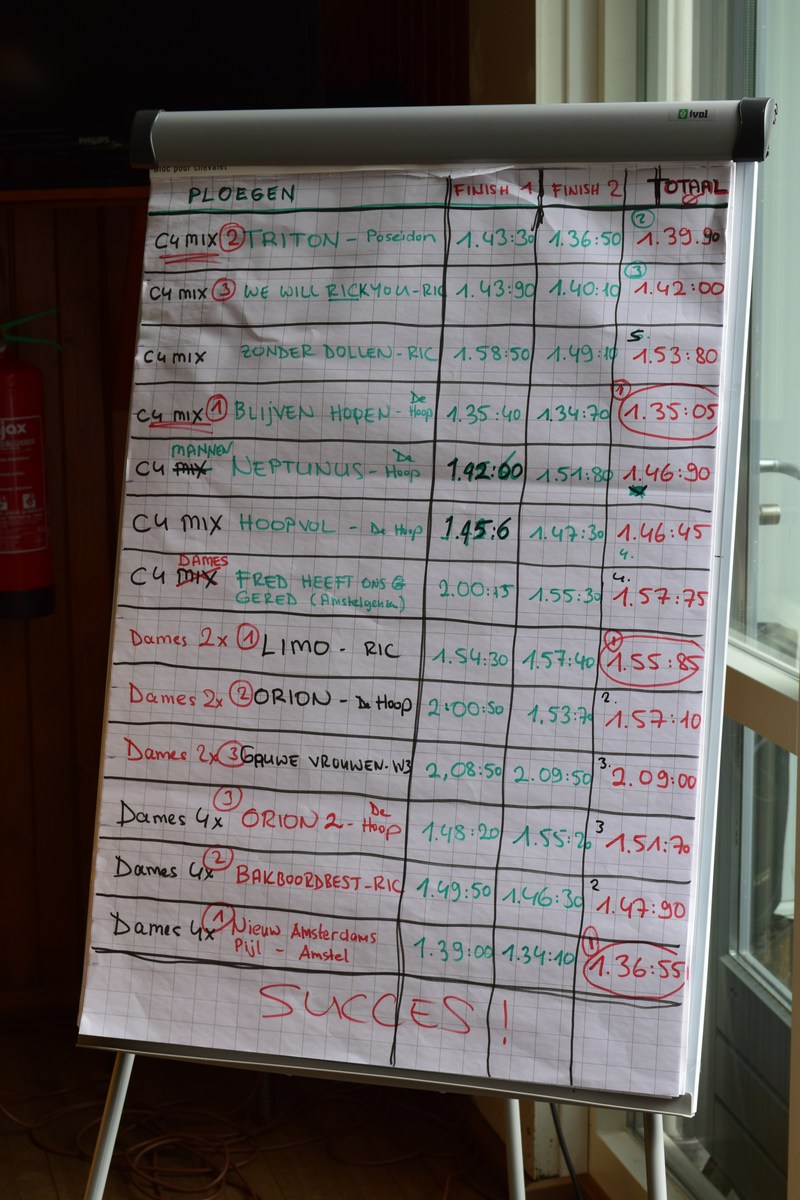 ival
Bloc pour chevalet
PLOEGEN FINISH 1 FINISH 2 TOTAAL
C4 MIX 2 TRITON - Poseidon 1.43:30 1.36:50 2 1.39.90
C4 MIX 3 WE WILL RICKYOU-RIC 1.43:90 1.40:10 3 1.42:00
C4 MIX ZONDER DOLLEN - RIC 1.58:50 1.49:10 5. 1.53:80
C4 MIX 1 BLIJVEN HOPEN - De Hoop 1.35:40 1.34:70 1 1.35:05
C4 MIX MANNEN NEPTUNUS - De Hoop 1.42:60 1.51:80 1.46:90
C4 MIX HOOPVOL - De Hoop 1.45:6 1.47:30 1.46:45 4.
C4 MIX DAMES FRED HEEFT ONS
GERED (Amstelgehen) 2.00:15 1.55:30 4. 1.57:75
Dames 2x 1 LIMO - RIC 1.54:30 1.57:40 1 1.55:85
Dames 2x 2 ORION - De Hoop 2.00:50 1.53:70 2. 1.57:10
Dames 2x 3 GAUWE VROUWEN-W3 2,08:50 2.09:50 3. 2.09:00
Dames 4x 3 ORION 2 - De Hoop 1.48:20 1.55:20 3 1.51:70
Dames 4x 2 BAKBOORDBEST-RIC 1.49:50 1.46:30 2 1.47:90
Dames 4x 1 Nieuw Amsterdams
Pijl - Amstel 1.39:00 1.34:10 1 1.36:55
SUCCES!
jax
PHILIPS